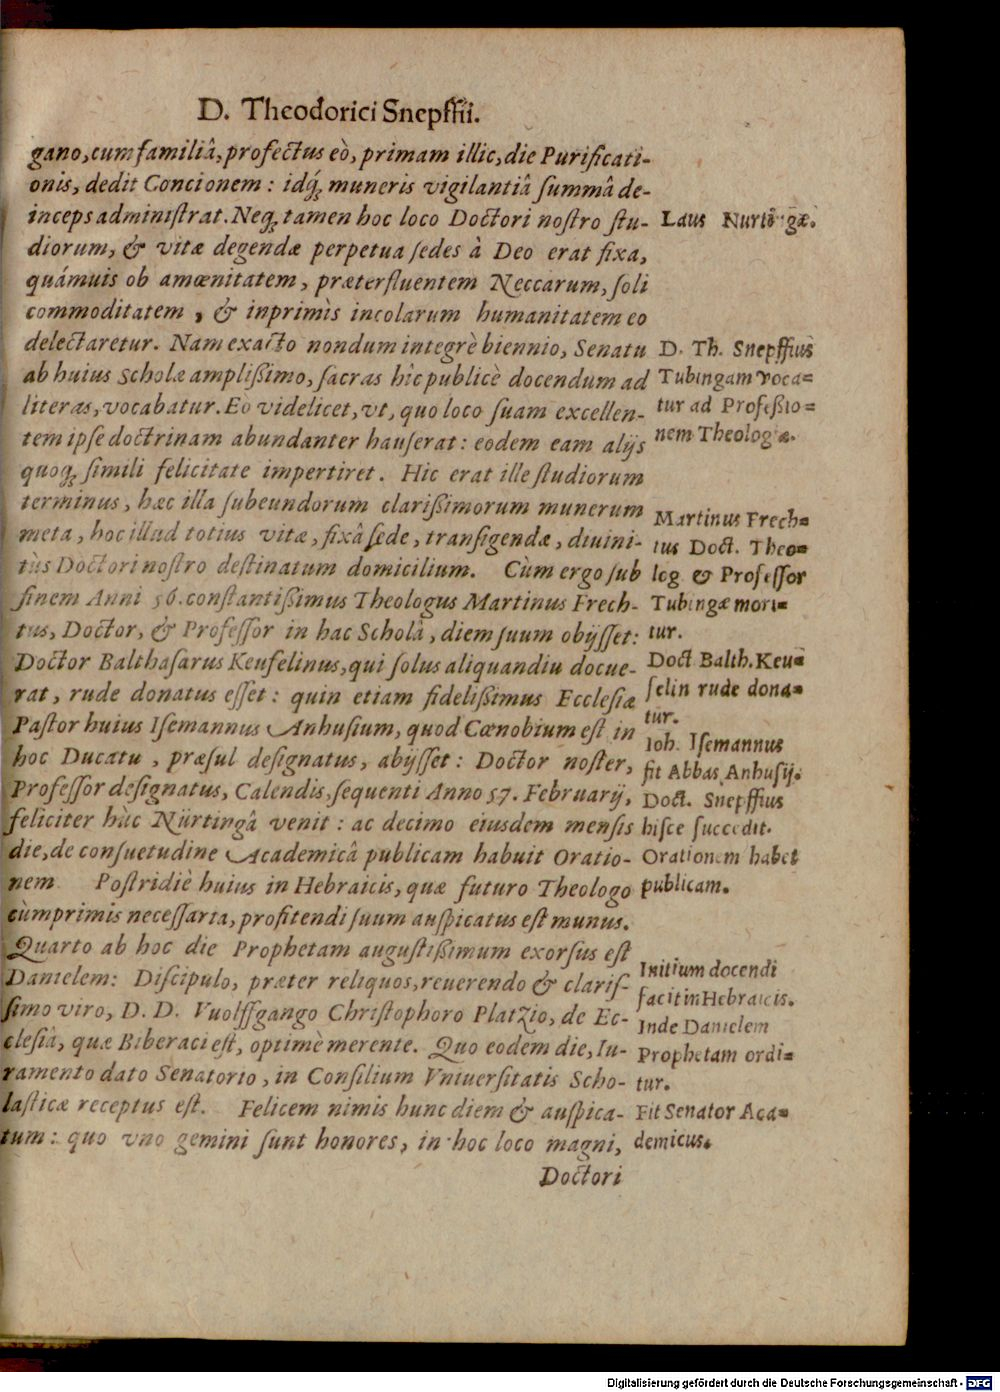 D. Theodorici Snepffii.
gano, cum familiâ, profectus eò, primam illic, die Purificati-
onis, dedit Concionem: idq́; muneris vigilantiâ summâ de-
inceps administrat. Neq; tamen hoc loco Doctori nostro stu-
diorum, & vitæ degendæ perpetua sedes à Deo erat fixa,
quámuis ob amœnitatem, præterfluentem Neccarum, soli
commoditatem, & inprimìs incolarum humanitatem eo
delectaretur. Nam exacto nondum integrè biennio, Senatu
ab huius Scholæ amplißimo, sacras hîc publicè docendum ad
literas, vocabatur. Eò videlicet, vt, quo loco suam excellen-
tem ipse doctrinam abundanter hauserat: eodem eam alijs
quoq; simili felicitate impertiret. Hic erat ille studiorum
terminus, hæc illa subeundorum clarißimorum munerum
meta, hoc illud totius vitæ, fixâ sede, transigendæ, diuini-
tùs Doctori nostro destinatum domicilium. Cùm ergo sub
finem Anni 56. constantißimus Theologus Martinus Frech-
tus, Doctor, & Professor in hac Scholâ, diem suum obijsset:
Doctor Balthasarus Keuselinus, qui solus aliquandiu docue-
rat, rude donatus esset: quin etiam fidelißimus Ecclesiæ
Pastor huius Isemannus Anhusium, quod Cœnobium est in
hoc Ducatu, præsul designatus, abijsset: Doctor noster,
Professor designatus, Calendis, sequenti Anno 57. Februarij,
feliciter hùc Nürtingâ venit: ac decimo eiusdem mensis
die, de consuetudine Academicâ publicam habuit Oratio-
nem. Postridiè huius in Hebraicis, quæ futuro Theologo
cùmprimis necessaria, profitendi suum auspicatus est munus.
Quarto ab hoc die Prophetam augustißimum exorsus est
Danielem: Discipulo, præter reliquos, reuerendo & claris-
simo viro, D. D. Vuolffgango Christophoro Platzio, de Ec-
clesiâ, quæ Biberaci est, optimè merente. Quo eodem die, Iu-
ramento dato Senatorio, in Consilium Vniuersitatis Scho-
lasticæ receptus est. Felicem nimis hunc diem & auspica-
tum: quo vno gemini sunt honores, in hoc loco magni,
Doctori
Laus Nurtingæ.
D. Th. Snepffius
Tubingam voca=
tur ad Profeßio=
nem Theologiæ.
Martinus Frech=
tus Doct. Theo=
log. & Professor
Tubingæ mori=
tur.
Doct Balth. Keu=
selin rude dona=
tur.
Ioh. Isemannus
fit Abbas Anhusij.
Doct. Snepffius
hisce succedit.
Orationem habet
publicam.
Initium docendi
facit in Hebraicis.
Inde Danielem
Prophetam ordi=
tur.
Fit Senator Aca=
demicus.
Digitalisierung gefördert durch die Deutsche Forschungsgemeinschaft - DFG